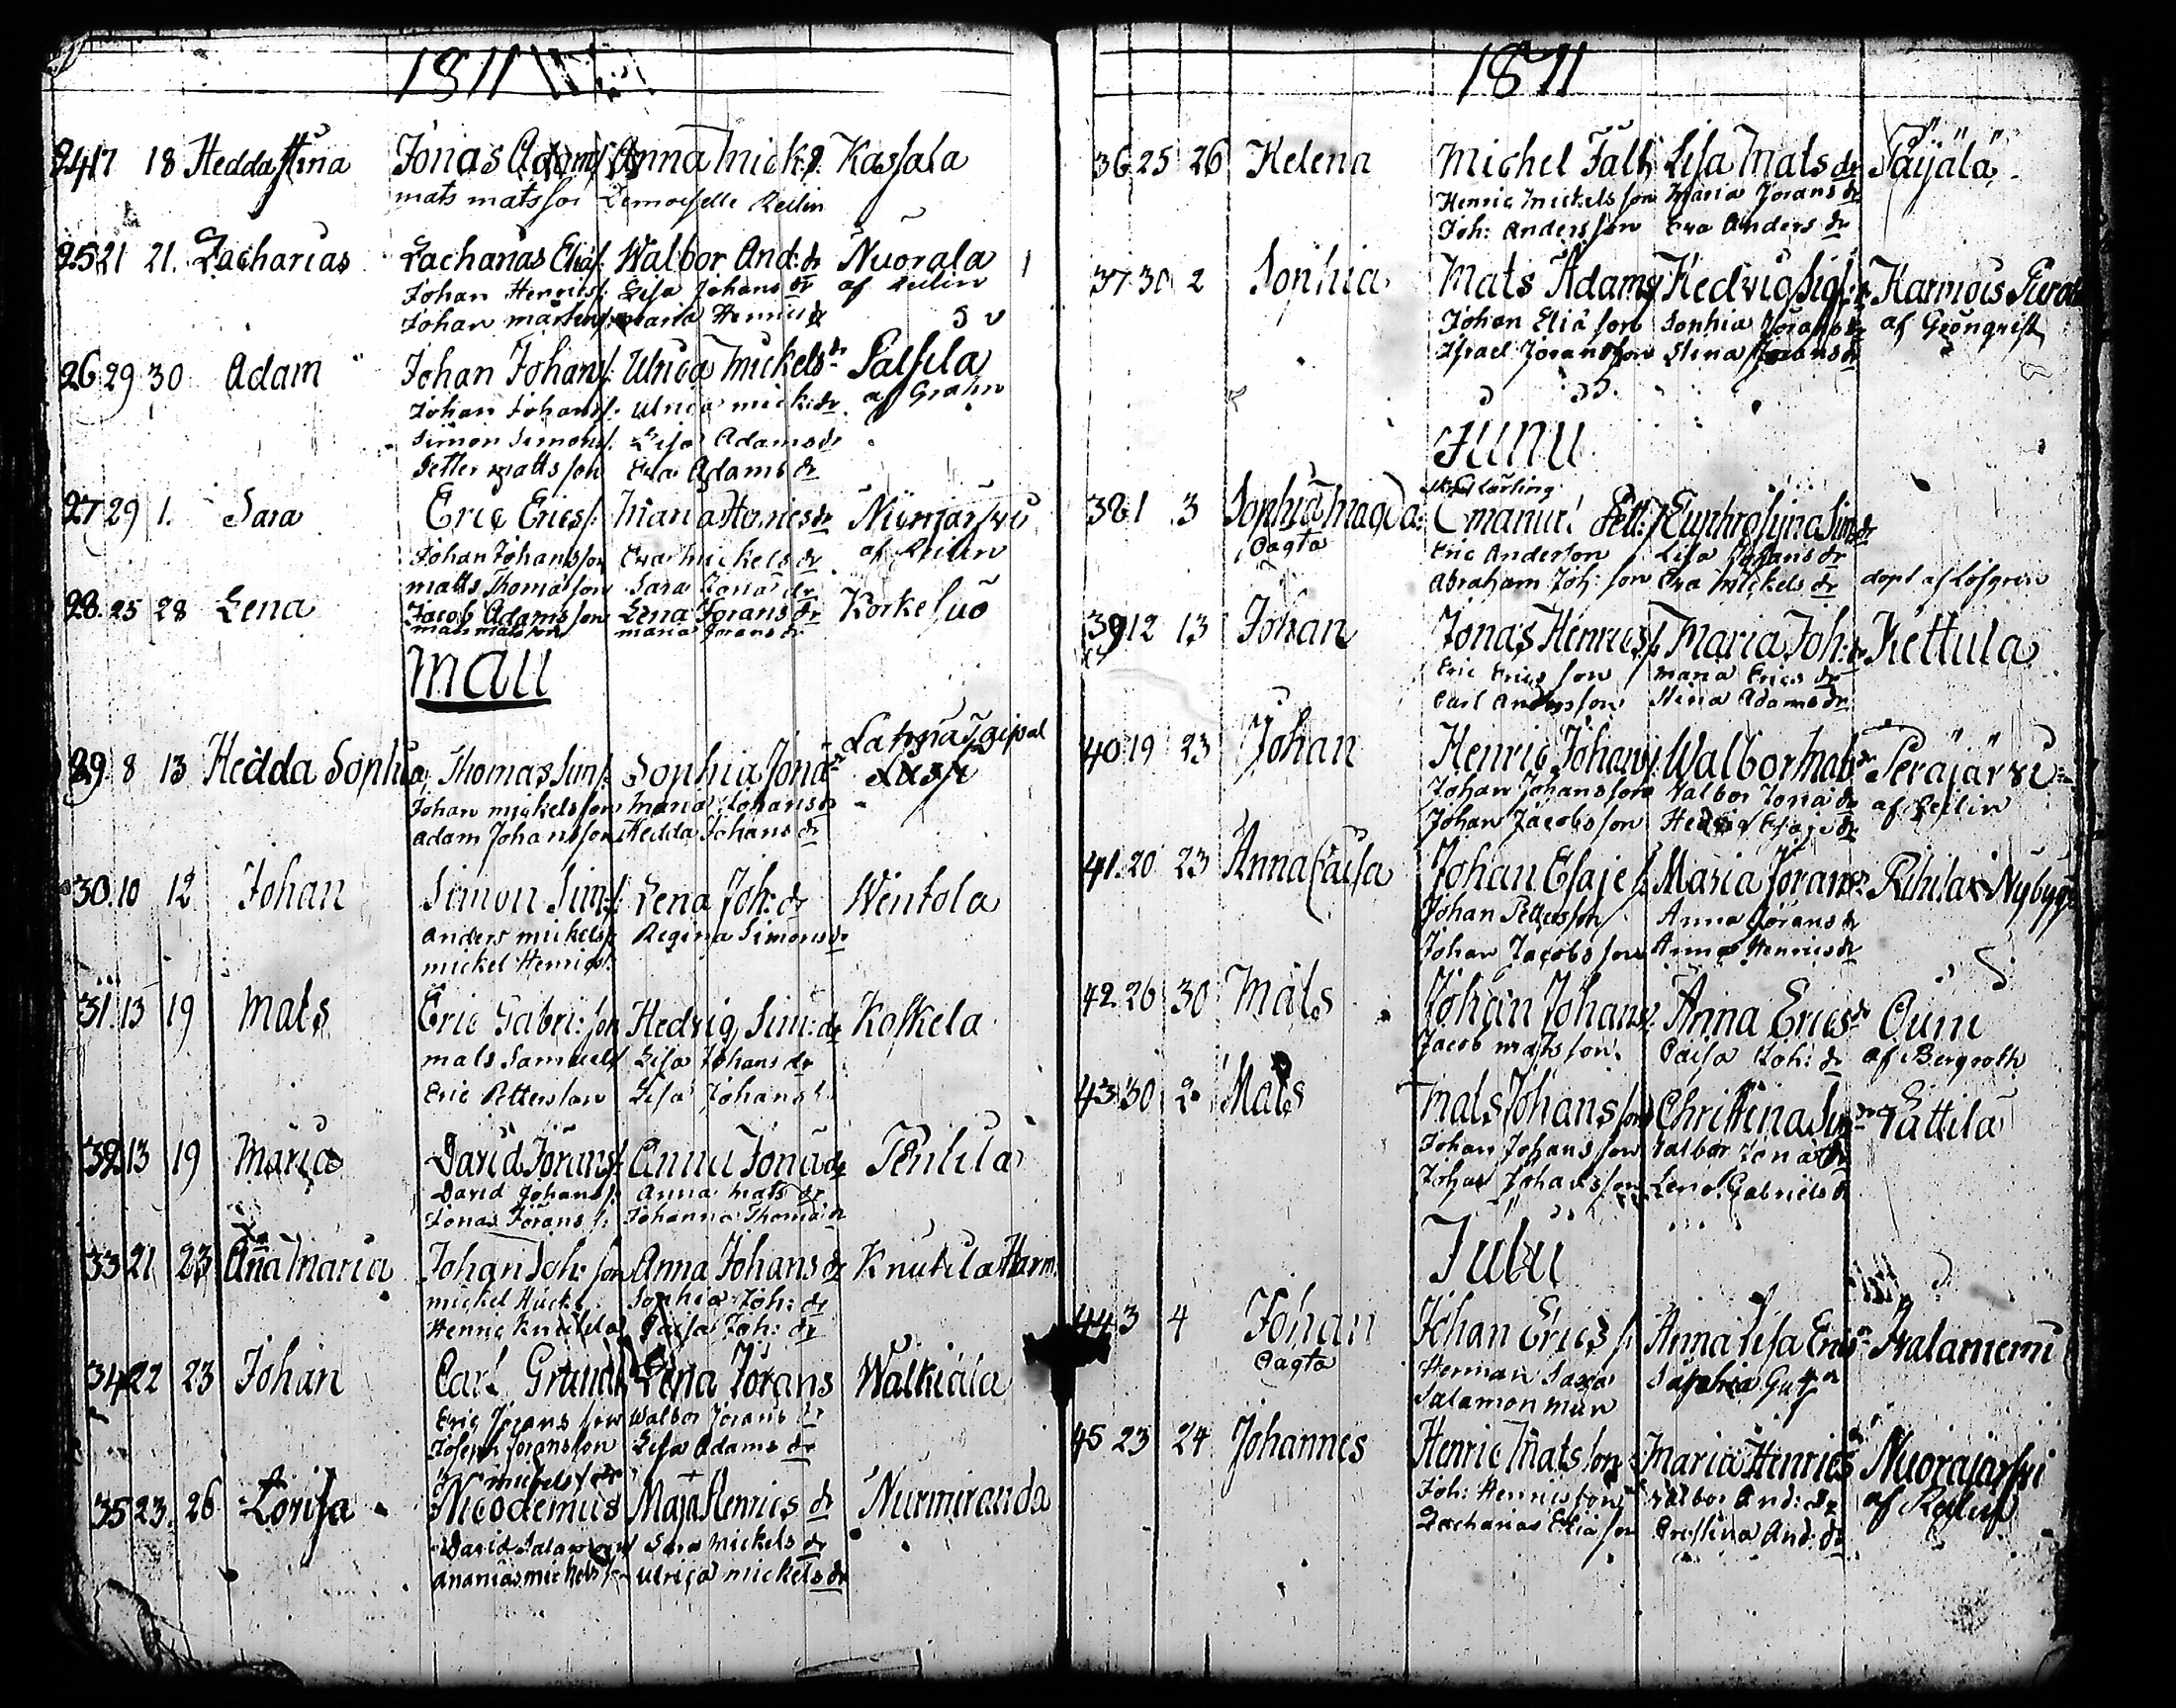 1811
24 17 18 Hedda Stina Jonas Adams Anna Mick: Kassala
mats matsson Demoiselle Reilin
25 21 21. Zacharias Zacharias Elias: Walbor And: dr Nuorala
Johan Henricss: Lisa Johans dr af Reilin
Johan Maria Henrics dr
26 29 30 Adam Johan Johans: Ulrica Mickels dr Palsila
Johan Johans: Ulrica mick: dr af Grahn
Simon Simons: Lisa Adams dr
Petter mattsson Eva Adams dr
27 29 1. Sara Eric Erics: Maria Henrics dr
Johan Johansson Eva Mickels dr af Reilin
matts Thomasson Sara Jonas dr
28. 25 28 Lena Jacob Adamsson Lena Jörans dr Korkesuo
mats matsson maria Jörans dr
Maii
29 8 13 Hedda Sophia, Thomas Sim: Sophia Jona
Johan mickelsson Maria Johans dr
Adam Johansson Hedda Johans dr
30. 10 12 Johan Simon Sim: Lena Joh: dr Wentola
Anders mickels: Regina Simons dr
mickel Henrics:
31. 13 19 Mats Eric Gabri: son Hedvig Sim: dr Koskela
mats Samuels Lisa Johans dr
Eric Pettersson Lisa Johans
32 13 19 Maria David Jörans: Anna Jona dr Penttila
David Johans: Anna Mats dr
Jonas Jörans: Johanna Thomæ dr
33 21 23 Anna Maria Johan Joh: son Anna Johans dr Knutila Harm.
mickel Huck: Sophia Joh: dr
Henric Knutila Caisa Joh: dr
34 22 23 Johan Carl Grund Lena Jörans Walkiala
Eric Jörans son Walbor Jörans dr
Joseph Joransson Lisa Adams dr
mickelsson
35 23. 26 Lovisa Nicodemus Maja Henrics dr Nurmiranda
David Sara Mickels dr
Ananias mickelsson Ulrica mickels dr
1811
36 25 26 Helena Michel Falk Lisa Mats dr Päijälä
Henric Mickelsson Maria Jörans dr
Joh: Andersson Eva Anders dr
37 30 2 Sophia Mats Adams Hedvig
Johan Eliæ son Sophia Jörans dr af Grönqvist
Israel Joransson Stina Jörans dr
Junii
38 1 3 Sophia Magda: Emanuel Pett: Euphrosyna Sim dr
Oägta Eric Anderson Lisa Johans dr
Abraham Joh: son Eva Mickels dr döpt af Löfgren
39 12 13 Johan Jonas Henrics: Maria Joh: dr Kettula
Eric Ericsson maria Erics dr
Carl Andersson Stina Adams dr
40 19 23 Johan Henric Johans: Walbor Mats dr Peräjärvi
Johan Johansson Valbor Jona dr af Reilin
Johan Jacobsson Hedvig Esaje dr
41. 20 23 Anna Caisa Johan Esaje: Maria Jörans Nybygg
Johan Pettersson Anna Görans dr
Johan Jacobsson Anna Henrics dr
42. 26 30 Mats Johan Johans: Anna Erics dr
Jacob matsson Caisa Joh: dr af Bergroth
43 30 2 Mats Mats Johansson Christina
Johan Johansson Valbor Jona dr
Johan Johansson Lena Gabriels dr
Julii
44 3 4 Johan Johan Erics: Anna Lisa Erics
Oägta Herman Sophia
Salamon
45 23 24 Johannes Henric Matsson Maria Henrics Nuorajärfvi
Joh: Henricsson Valbor And: dr af Reilin
Zacharias Eliæ son Cristina And: dr